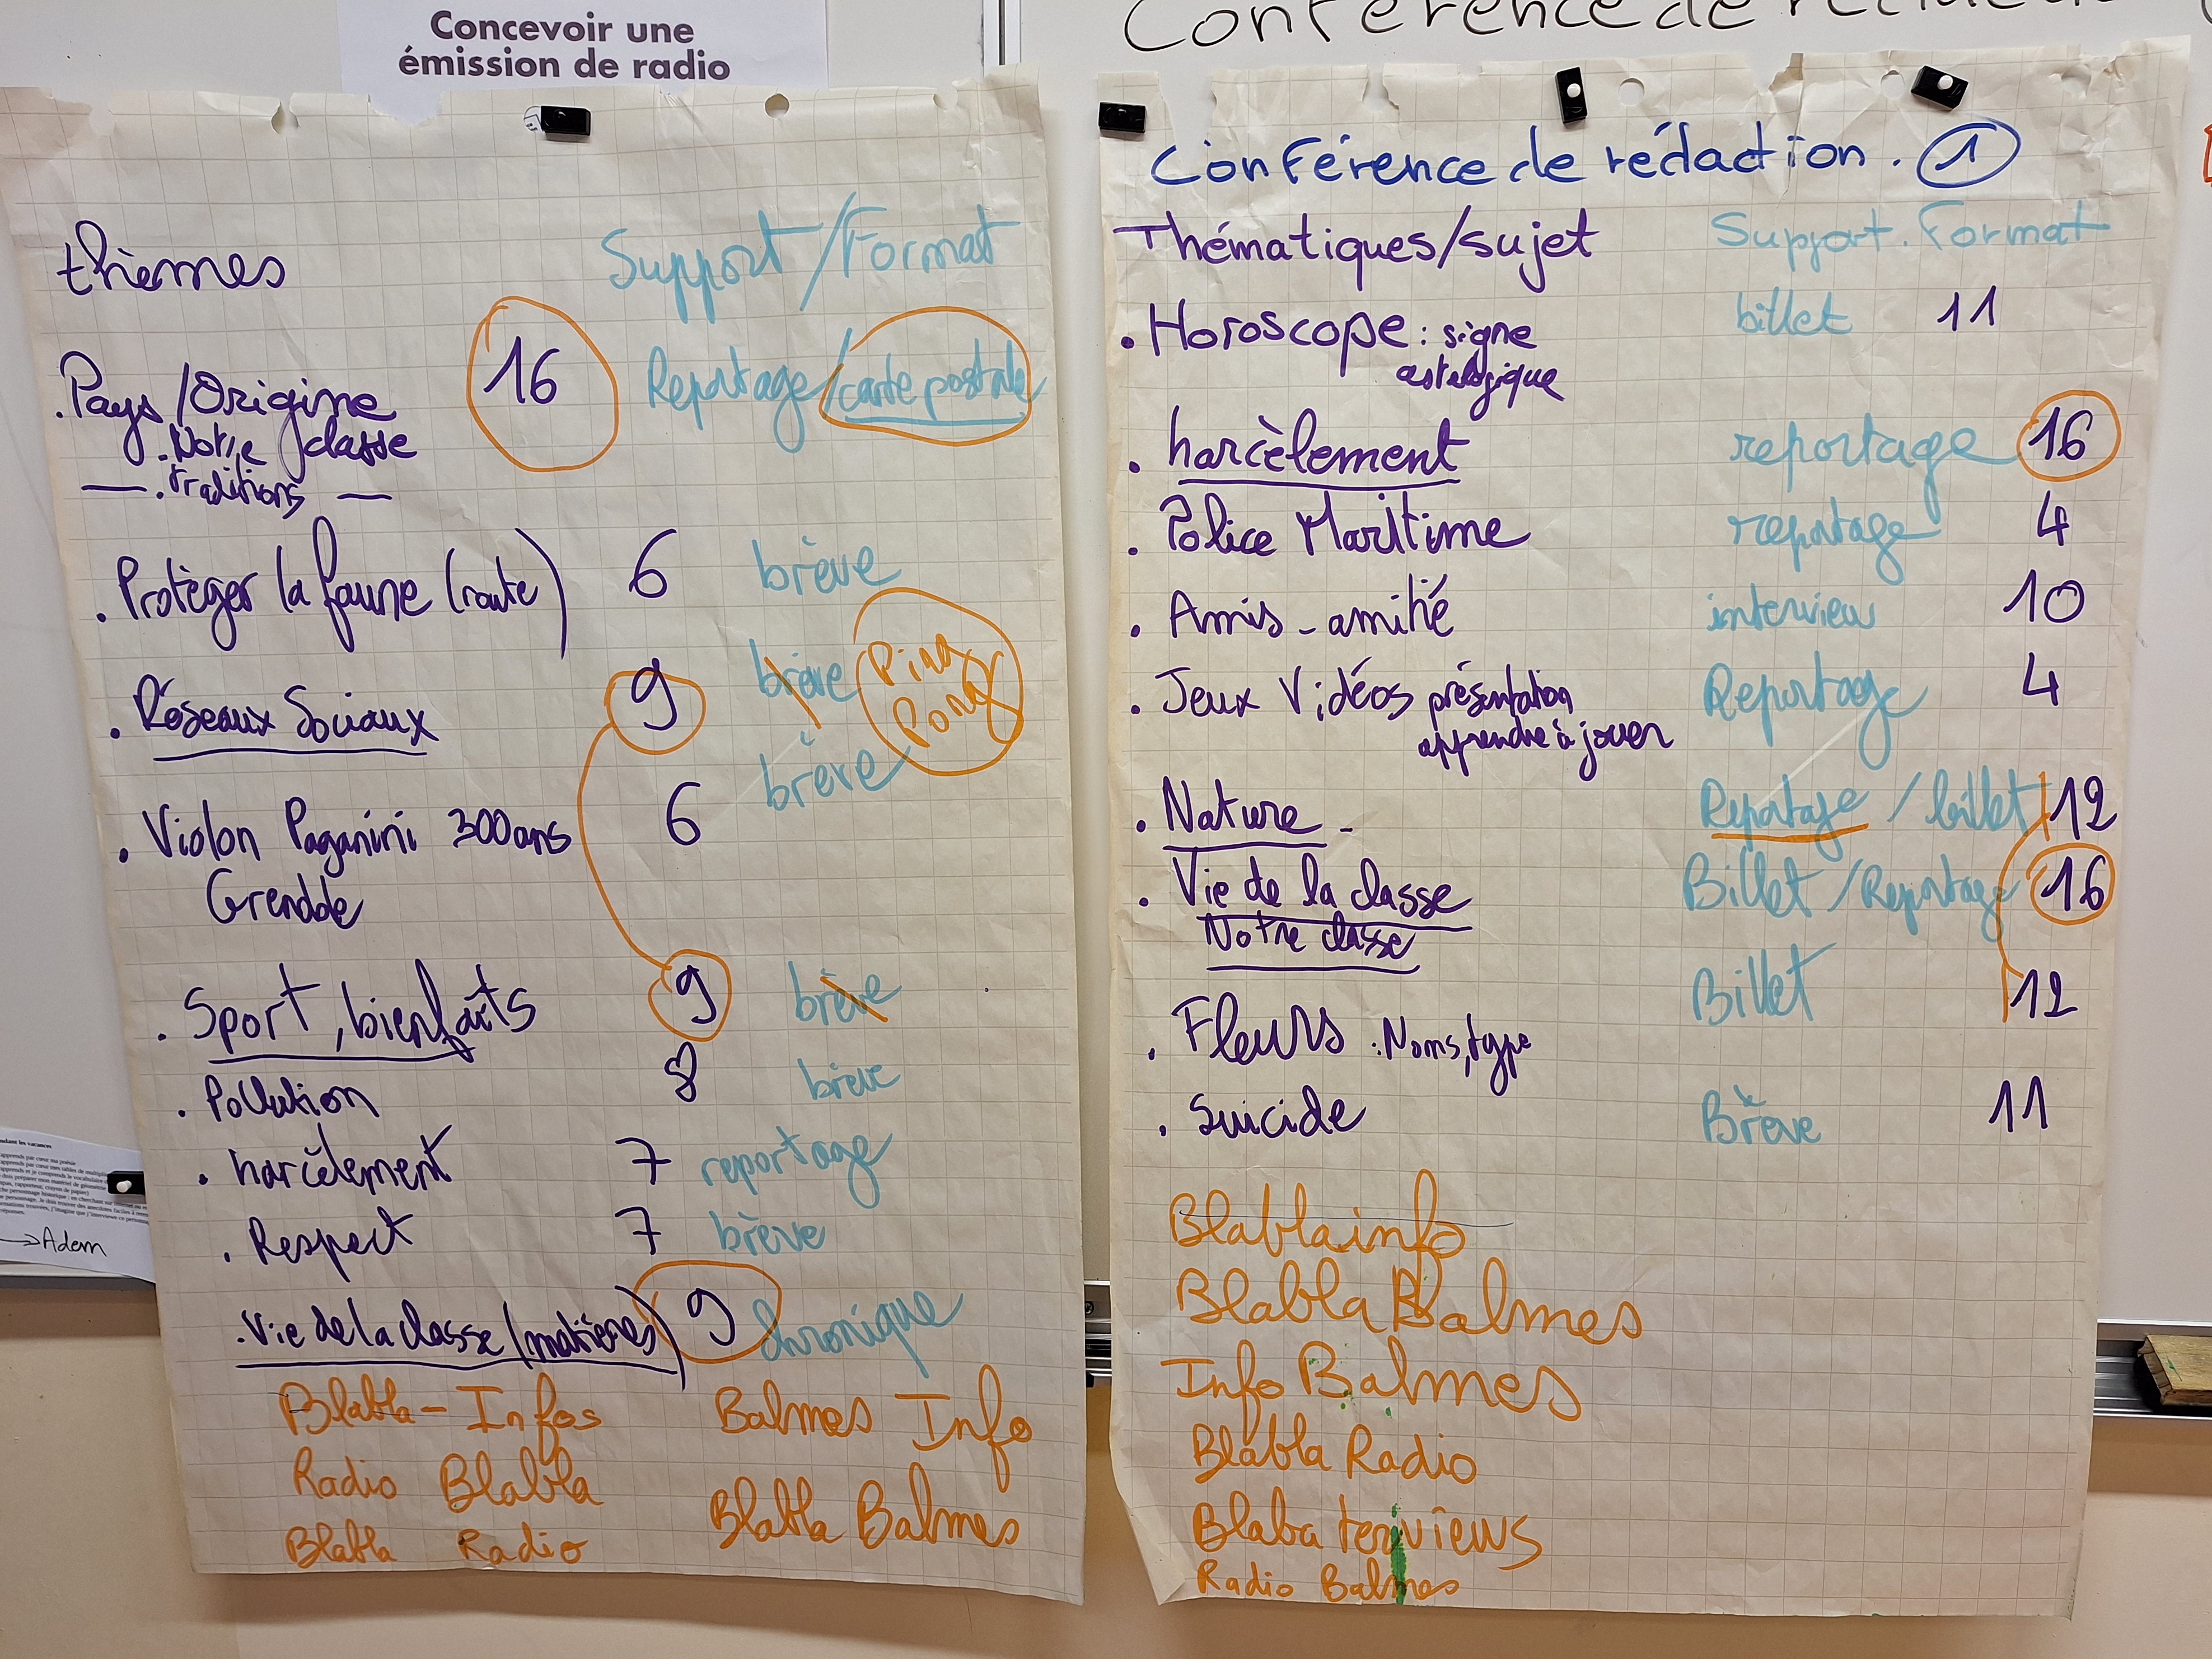 Concevoir une
émission de radio
Conférence de
thèmes Support/Format
. Pays/Origine 16 Reportage/carte postale
. Notre classe
— . traditions —
. Protèger la faune (route) 6 brève
. Réseaux Sociaux 9 brève Ping Pong
. Violon Paganini 300ans 6 brève
Grenoble
. Sport, bienfaits 9 brève
. Pollution 8 brève
. harcèlement 7 reportage
. Respect 7 brève
. Vie de la classe (matières) 9 chronique
Blabla-Infos Balmes Info
Radio Blabla
Blabla Balmes
Blabla Radio
Conférence de rédaction . 1
Thématiques/sujet Support. Format
. Horoscope : signe billet 11
astrologique
. harcèlement reportage 16
. Police Maritime reportage 4
. Amis - amitié interview 10
. Jeux Vidéos présentation Reportage 4
apprendre à jouer
. Nature - Reportage / billet 12
. Vie de la classe Billet /Reportage 16
Notre classe
. Fleurs : Noms, type Billet 12
. Suicide Brève 11
Blablainfo
Blabla Balmes
Info Balmes
Blabla Radio
Blaba terviews
Radio Balmes
→ Adem